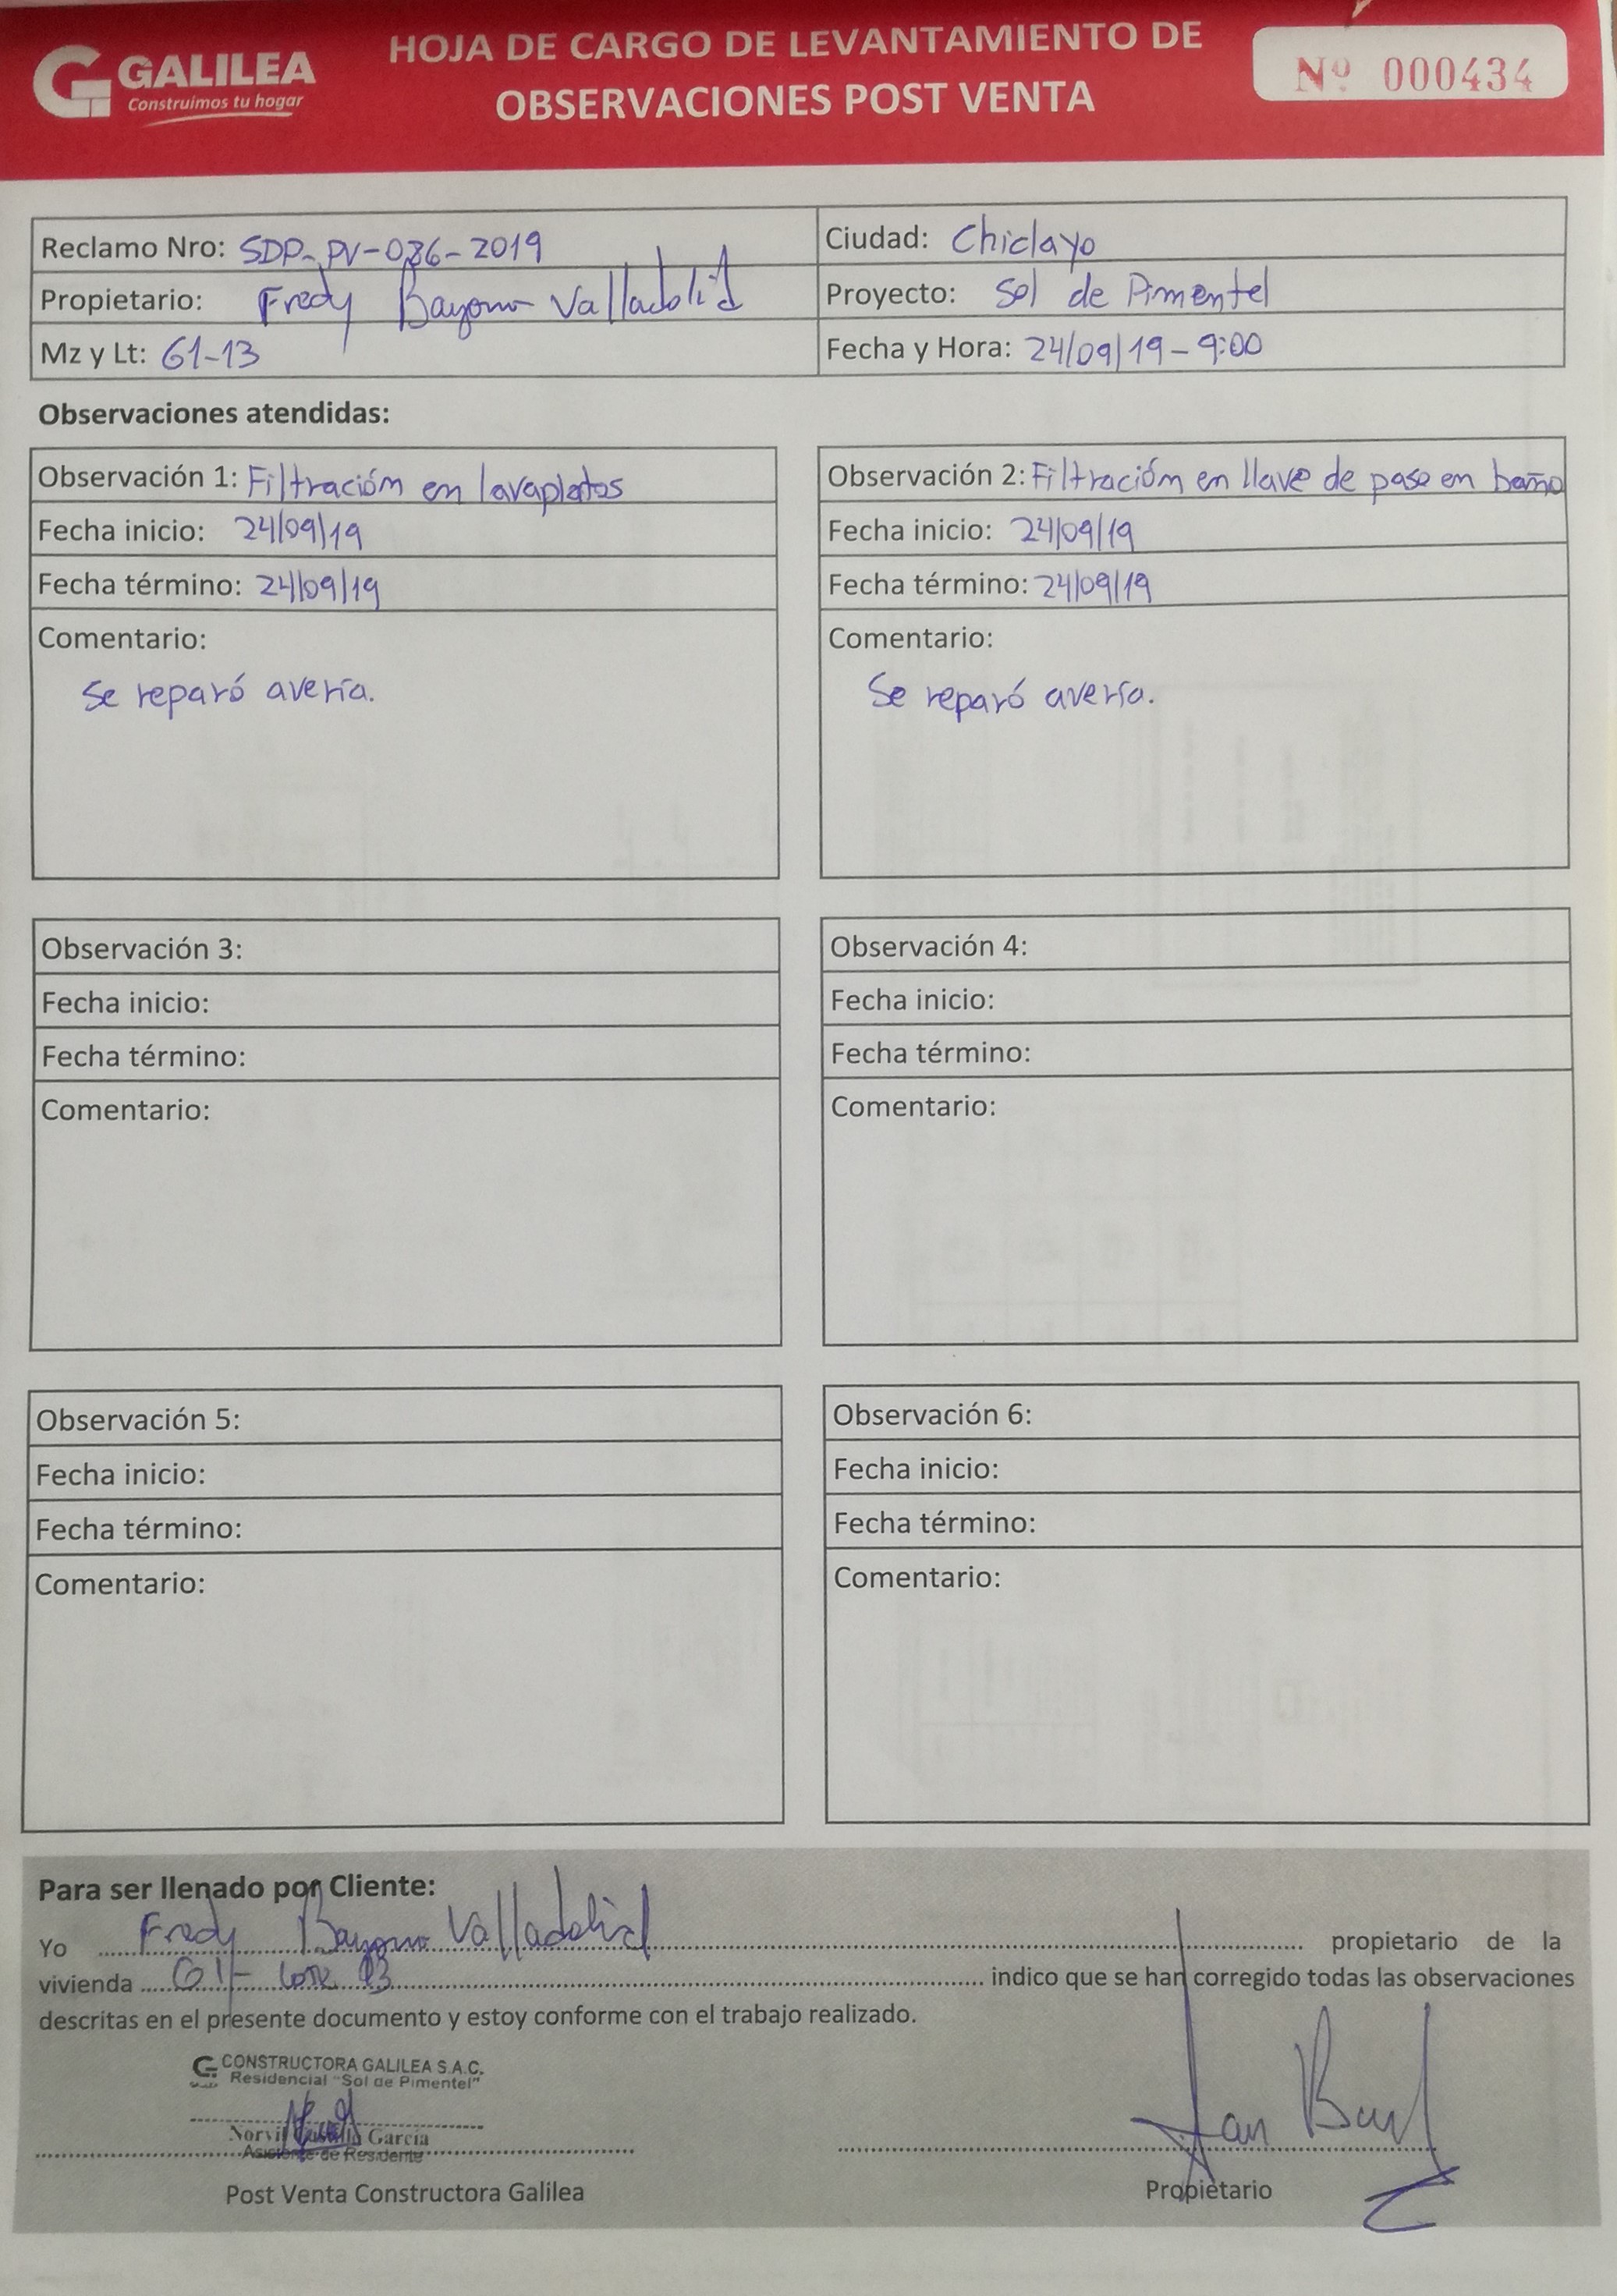 GALILEA
Construimos tu hogar
HOJA DE CARGO DE LEVANTAMIENTO DE
OBSERVACIONES POST VENTA
Nº 000434
Reclamo Nro: SDP-PV-086-2019
Ciudad: Chiclayo
Propietario: Fredy Bayona Valladolid
Proyecto: Sol de Pimentel
Mz y Lt: 61-13
Fecha y Hora: 24/09/19-9:00
Observaciones atendidas:
Observación 1: Filtración en lavaplatos
Fecha inicio: 24/09/19
Fecha término: 24/09/19
Comentario:
Se reparó avería.
Observación 2: Filtración en llave de paso en baño
Fecha inicio: 24/09/19
Fecha término: 24/09/19
Comentario:
Se reparó avería.
Observación 3:
Fecha inicio:
Fecha término:
Comentario:
Observación 4:
Fecha inicio:
Fecha término:
Comentario:
Observación 5:
Fecha inicio:
Fecha término:
Comentario:
Observación 6:
Fecha inicio:
Fecha término:
Comentario:
Para ser llenado por Cliente:
Yo Fredy Bayona Valladolid propietario de la
vivienda G1- Lote 13 indico que se han corregido todas las observaciones
descritas en el presente documento y estoy conforme con el trabajo realizado.
CONSTRUCTORA GALILEA S.A.C.
Residencial "Sol de Pimentel"
García
Asistente de Residente
Post Venta Constructora Galilea
Propietario